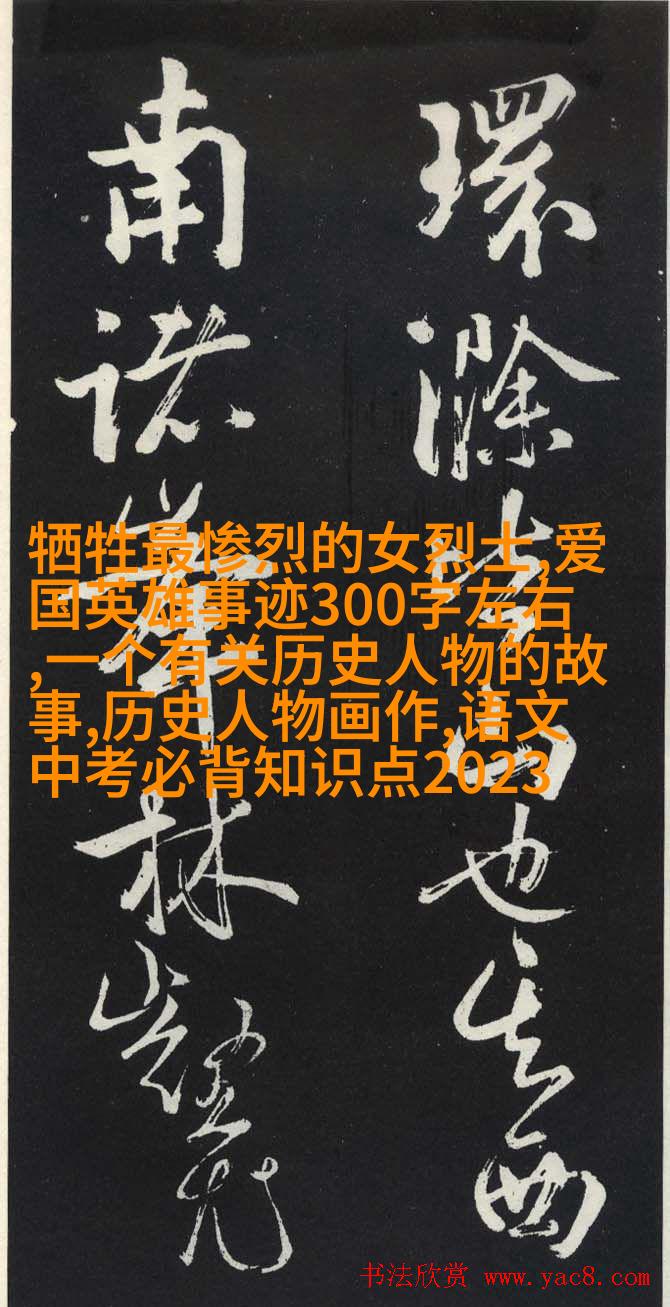 環滁皆山也其西
南諸峯林壑尤
牺牲最惨烈的女烈士,爱
国英雄事迹300字左右
,一个有关历史人物的故
事,历史人物画作,语文
中考必背知识点2023
书法欣赏 www.yac8.com